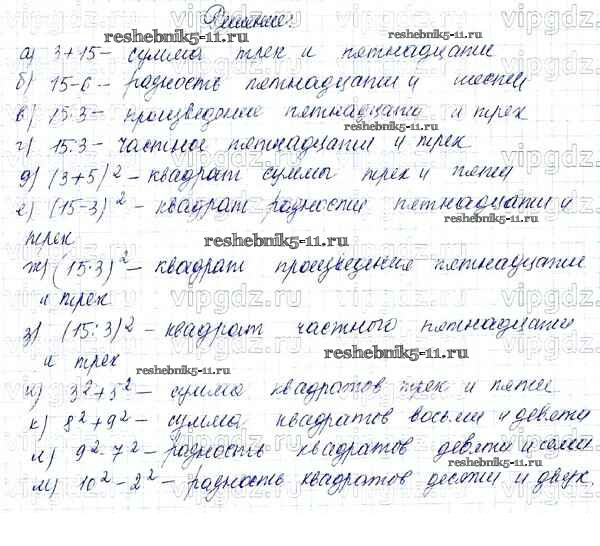 Решение:
а) 3+15 - сумма трех и пятнадцати
б) 15-6 - разность пятнадцати и шести
в) 15·3 - произведение пятнадцати и трех
г) 15:3 - частное пятнадцати и трех
д) (3+5)² - квадрат суммы трех и пяти
е) (15-3)² - квадрат разности пятнадцати и
трех
ж) (15·3)² - квадрат произведения пятнадцати
и трех
з) (15:3)² - квадрат частного пятнадцати
и трех
и) 3²+5² - сумма квадратов трех и пяти
к) 8²+9² - сумма квадратов восьми и девяти
л) 9²-7² - разность квадратов девяти и семи
м) 10²-2² - разность квадратов десяти и двух.
reshebnik5-11.ru
reshebnik5-11.ru
reshebnik5-11.ru
reshebnik5-11.ru
reshebnik5-11.ru
reshebnik5-11.ru
reshebnik5-11.ru
reshebnik5-11.ru
vipgdz.ru